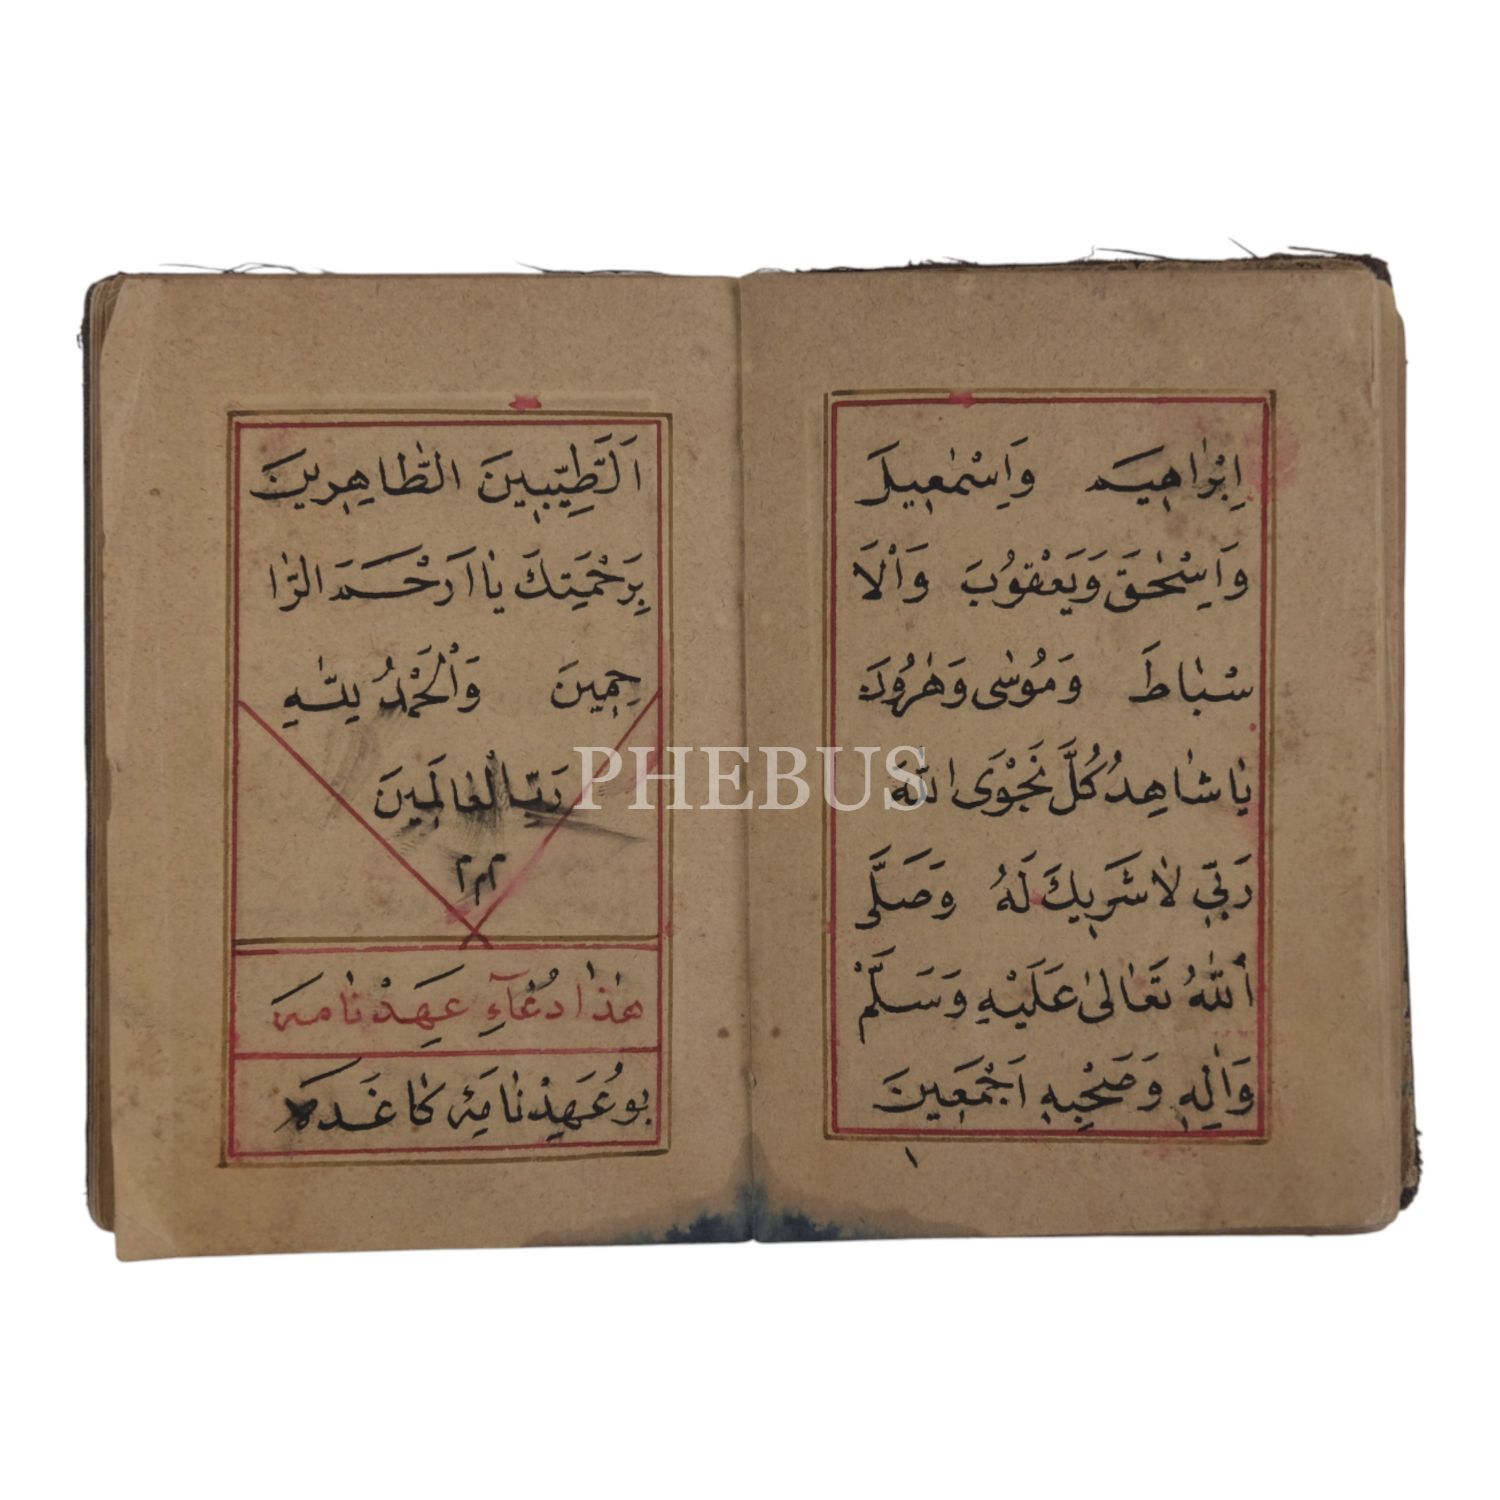 اِبْرٰاهٖيمَ وَاِسْمٰعٖيلَ
وَاِسْحٰقَ وَيَعْقُوبَ وَاْلاَ
سْبٰاطَ وَمُوسٰى وَهٰرُونَ
يٰا شٰاهِدُ كُلَّ نَجْوَى اللهُ
رَبّٖى لٰا شَرٖيكَ لَهُ وَصَلَّى
اللهُ تَعٰالىٰ عَلَيْهِ وَسَلَّمْ
وَاٰلِهٖ وَصَحْبِهٖ اَجْمَعٖينَ
اَلطَّيِّبٖينَ الطّٰاهِرٖينَ
بِرَحْمَتِكَ يٰا اَرْحَمَ الرّٰا
حِمٖينَ وَالْحَمْدُ لِلّٰهِ
رَبِّ الْعٰالَمٖينَ
م م م
هٰذٰا دُعٰآءِ عَهِدْ نٰامَه
بو عَهِدْ نٰامَهٔ كٰاغَدَه
PHEBUS